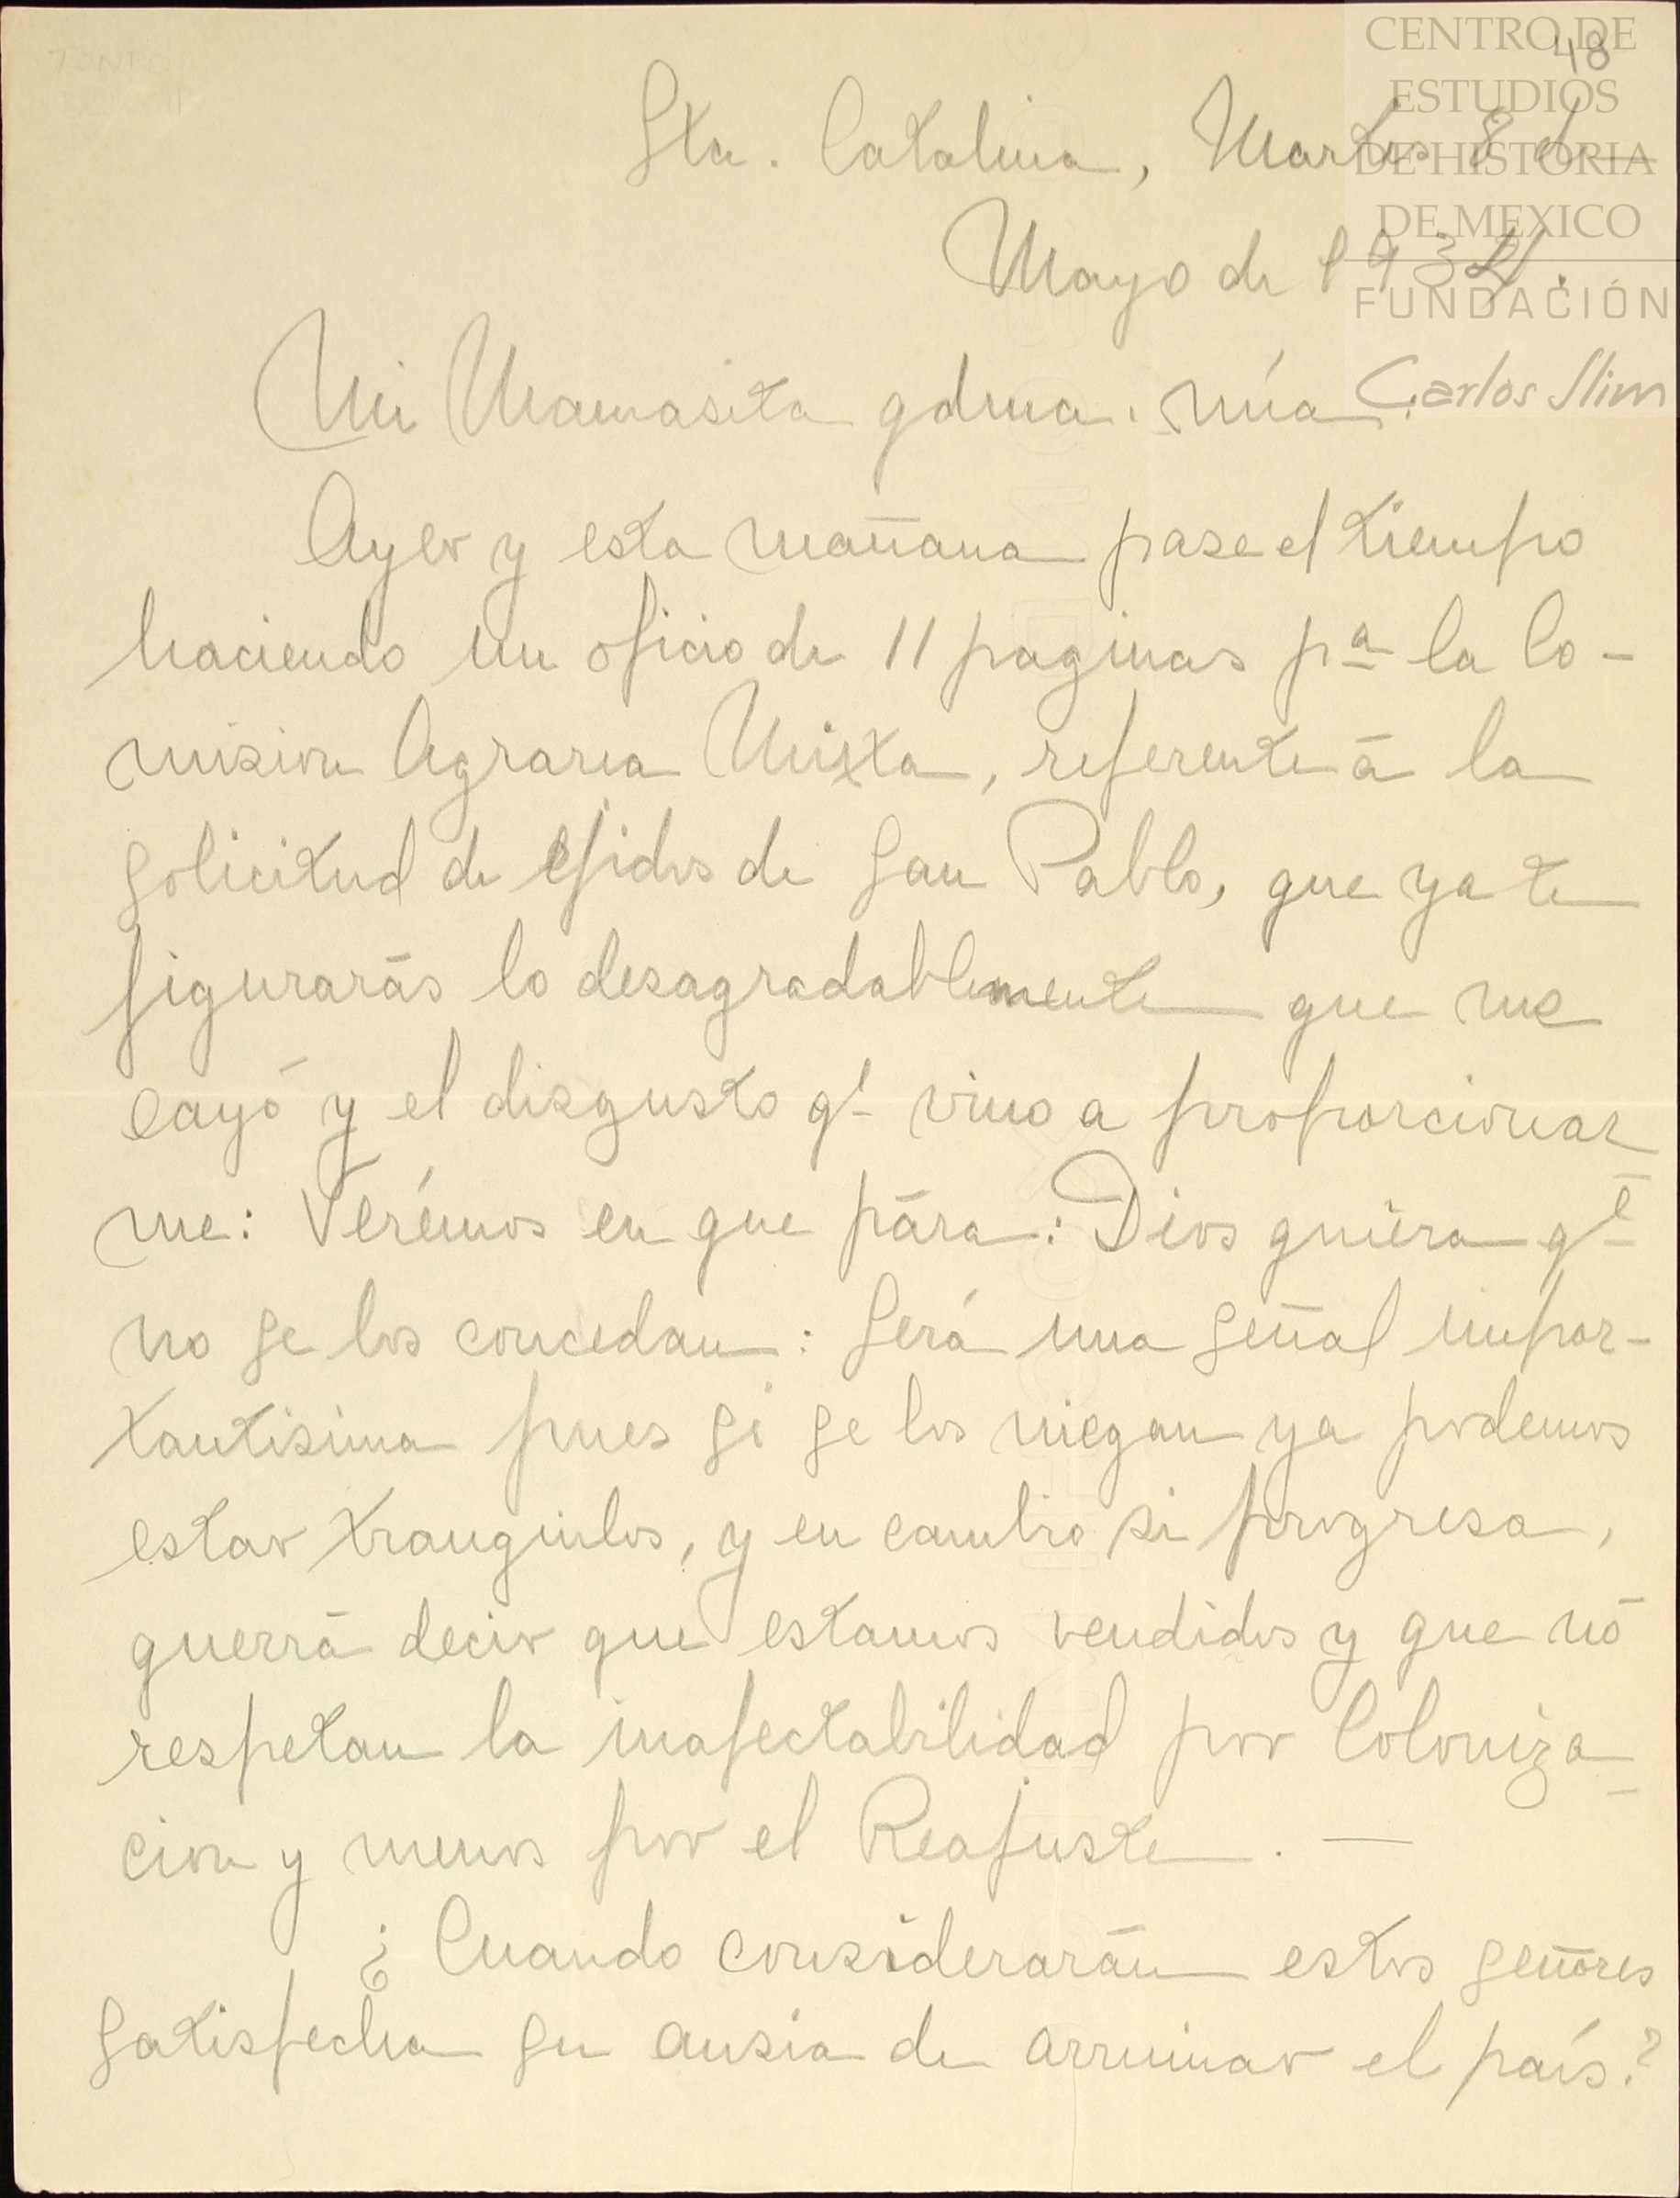 48
CENTRO DE
ESTUDIOS
DE HISTORIA
DE MEXICO
FUNDACIÓN
Carlos Slim
Sta. Catalina, Martes 8 de
Mayo de 1934.
Mi Mamasita qdma. mía.
Ayer y esta mañana pase el tiempo
haciendo un oficio de 11 paginas pª la Co-
mision Agraria Mixta, referente á la
solicitud de Ejidos de San Pablo, que ya te
figurarás lo desagradablemente que me
cayó y el disgusto qe vino a proporcionar
me: Verémos en que pára: Dios quiera qe
no se los concedan: Será una señal impor-
tantisima pues si se los niegan ya podemos
estar tranquilos, y en cambio si progresa,
querrá decir que estamos vendidos y que nó
respetan la inafectabilidad por Coloniza-
cion y menos por el Reajuste. —
¿Cuando considerarán estos señores
satisfecha su ansia de arruinar el país?